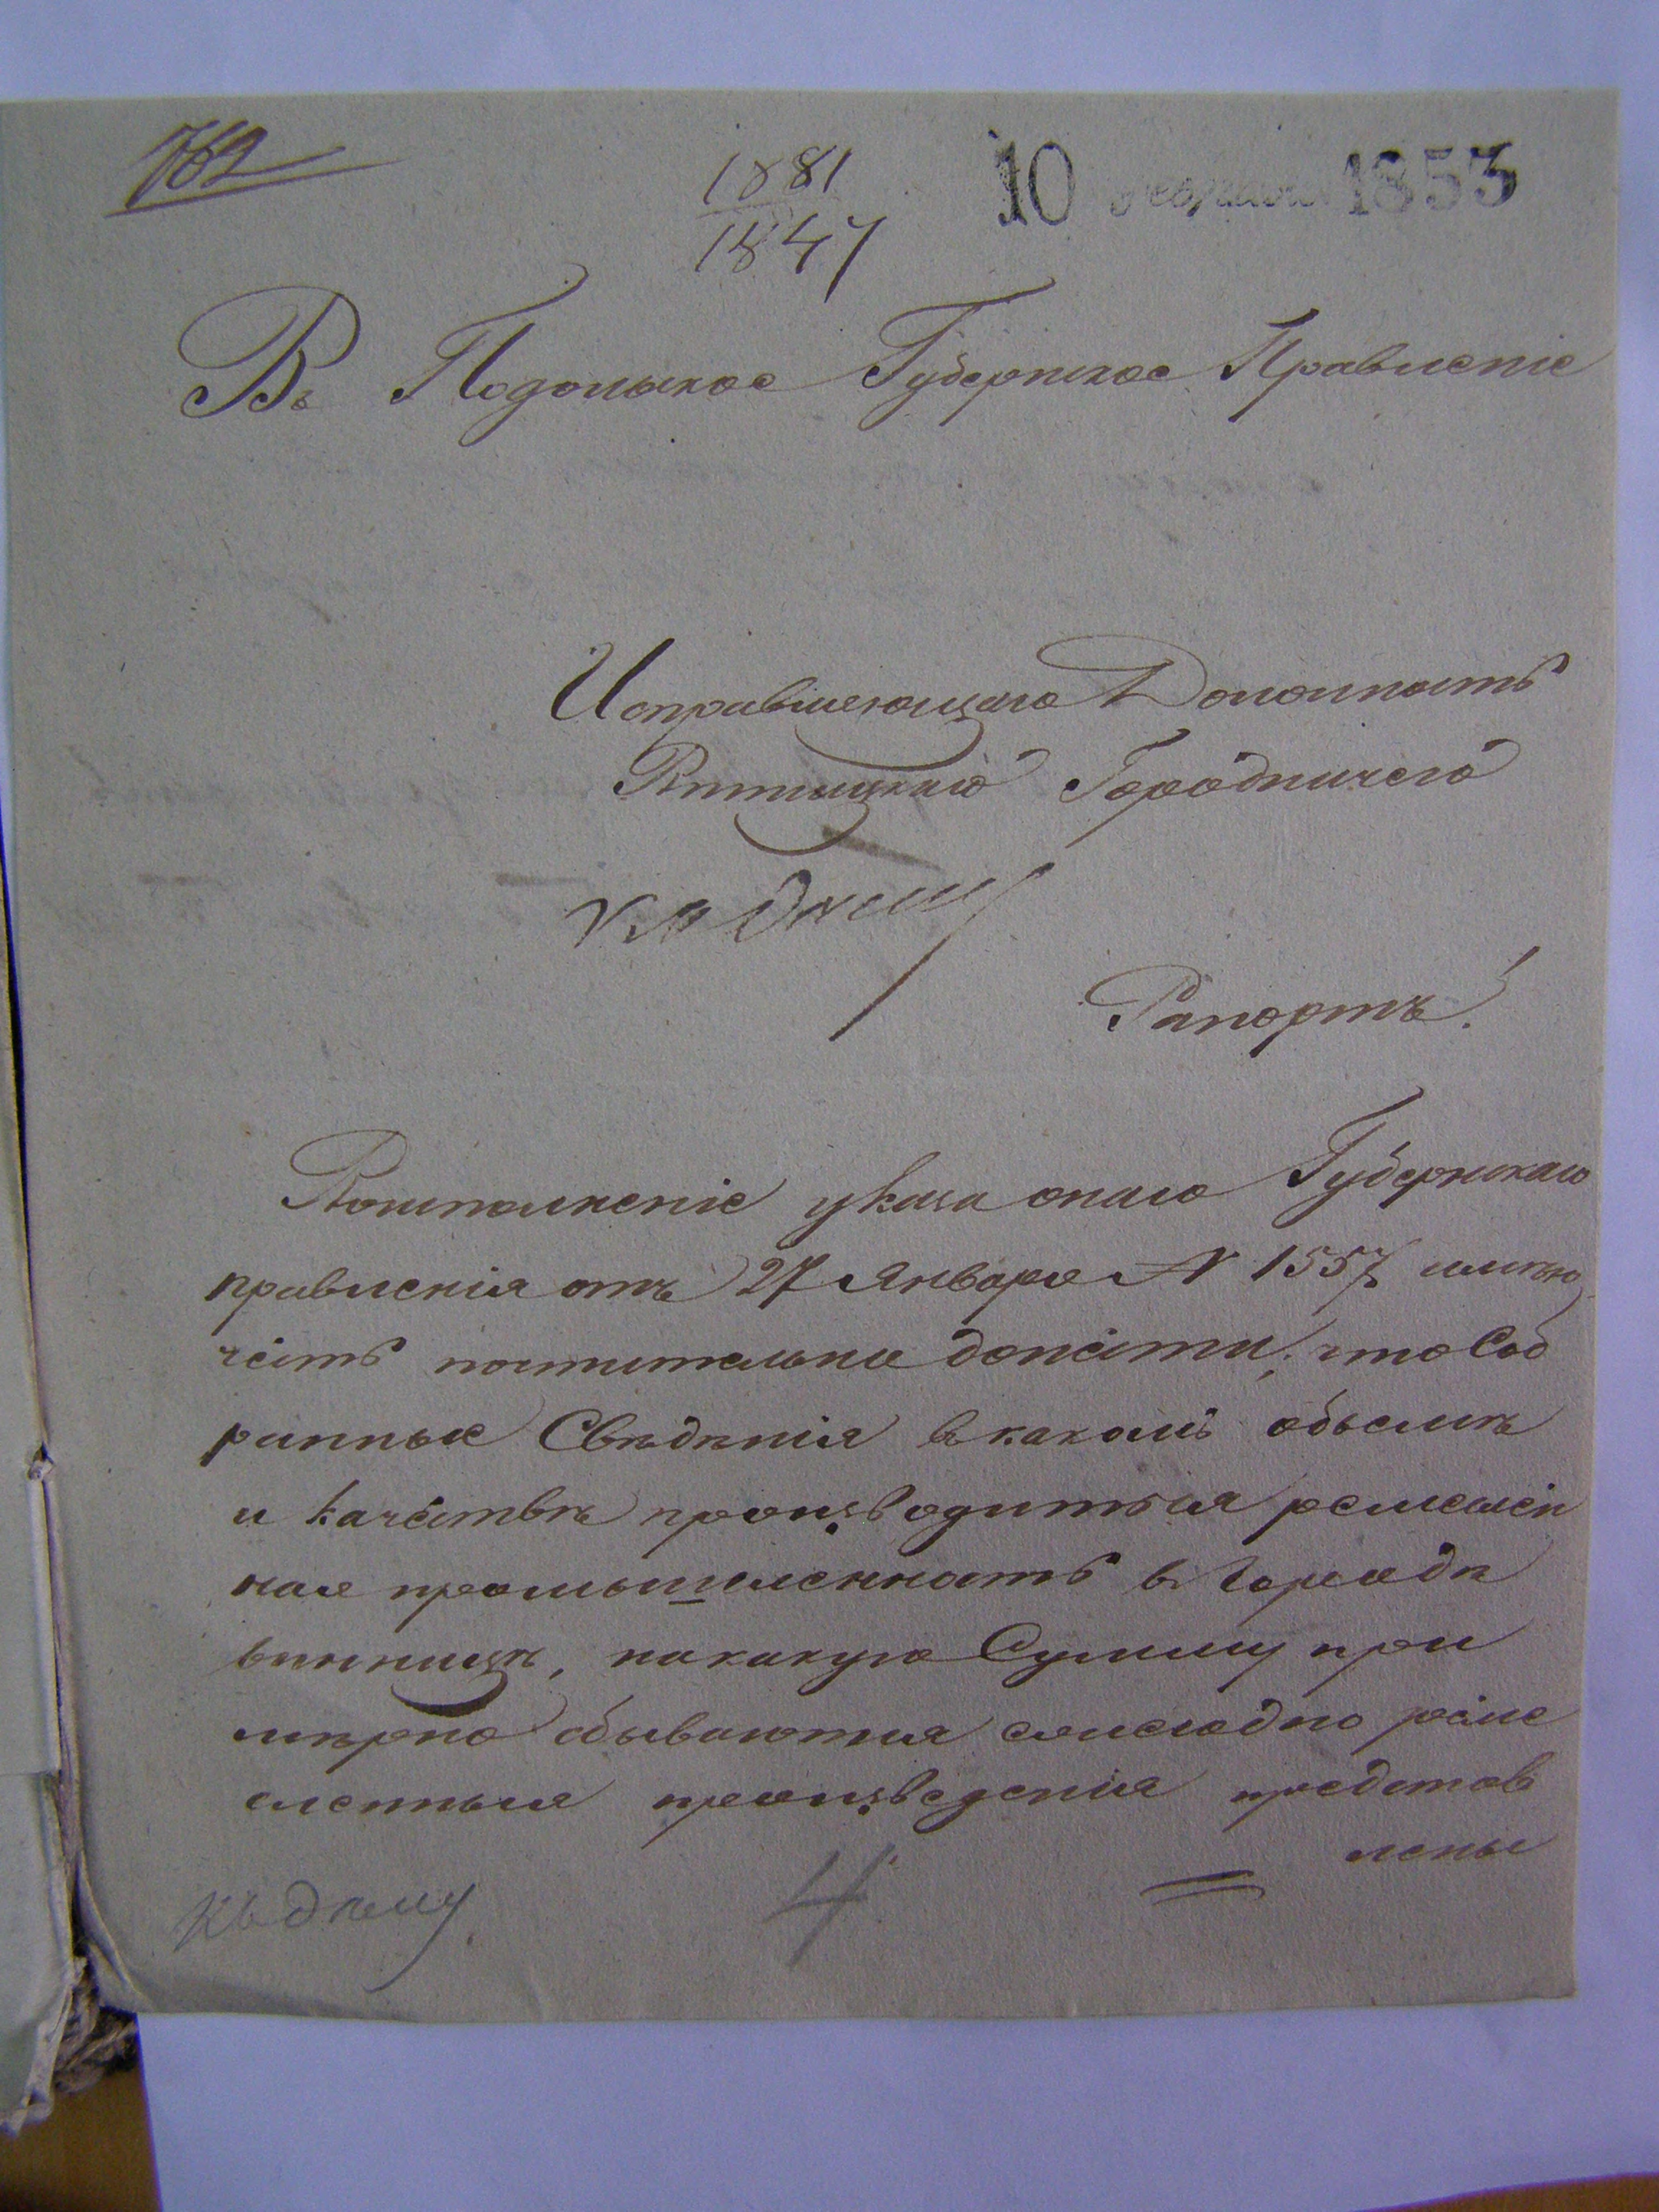 762
1881
1847
10 февраля 1853
Въ Подольское Губернское Правленіе
Исправляющаго Должность
Винницкаго Городничего
къ дѣлу
Рапортъ!
Воисполненіе указа онаго Губернскаго
правленія отъ 27 Января № 1557 имѣю
честь почтительно донести, что Соб
ранные Свѣдѣнія вкакомъ объемѣ
и качествѣ производиться ремеслен
ная промышленность в Городѣ
винницѣ, накакую Сумму при
мѣрно сбываются ежегодно реме
сленныя произведенія представ
лены
къ дѣлу
4